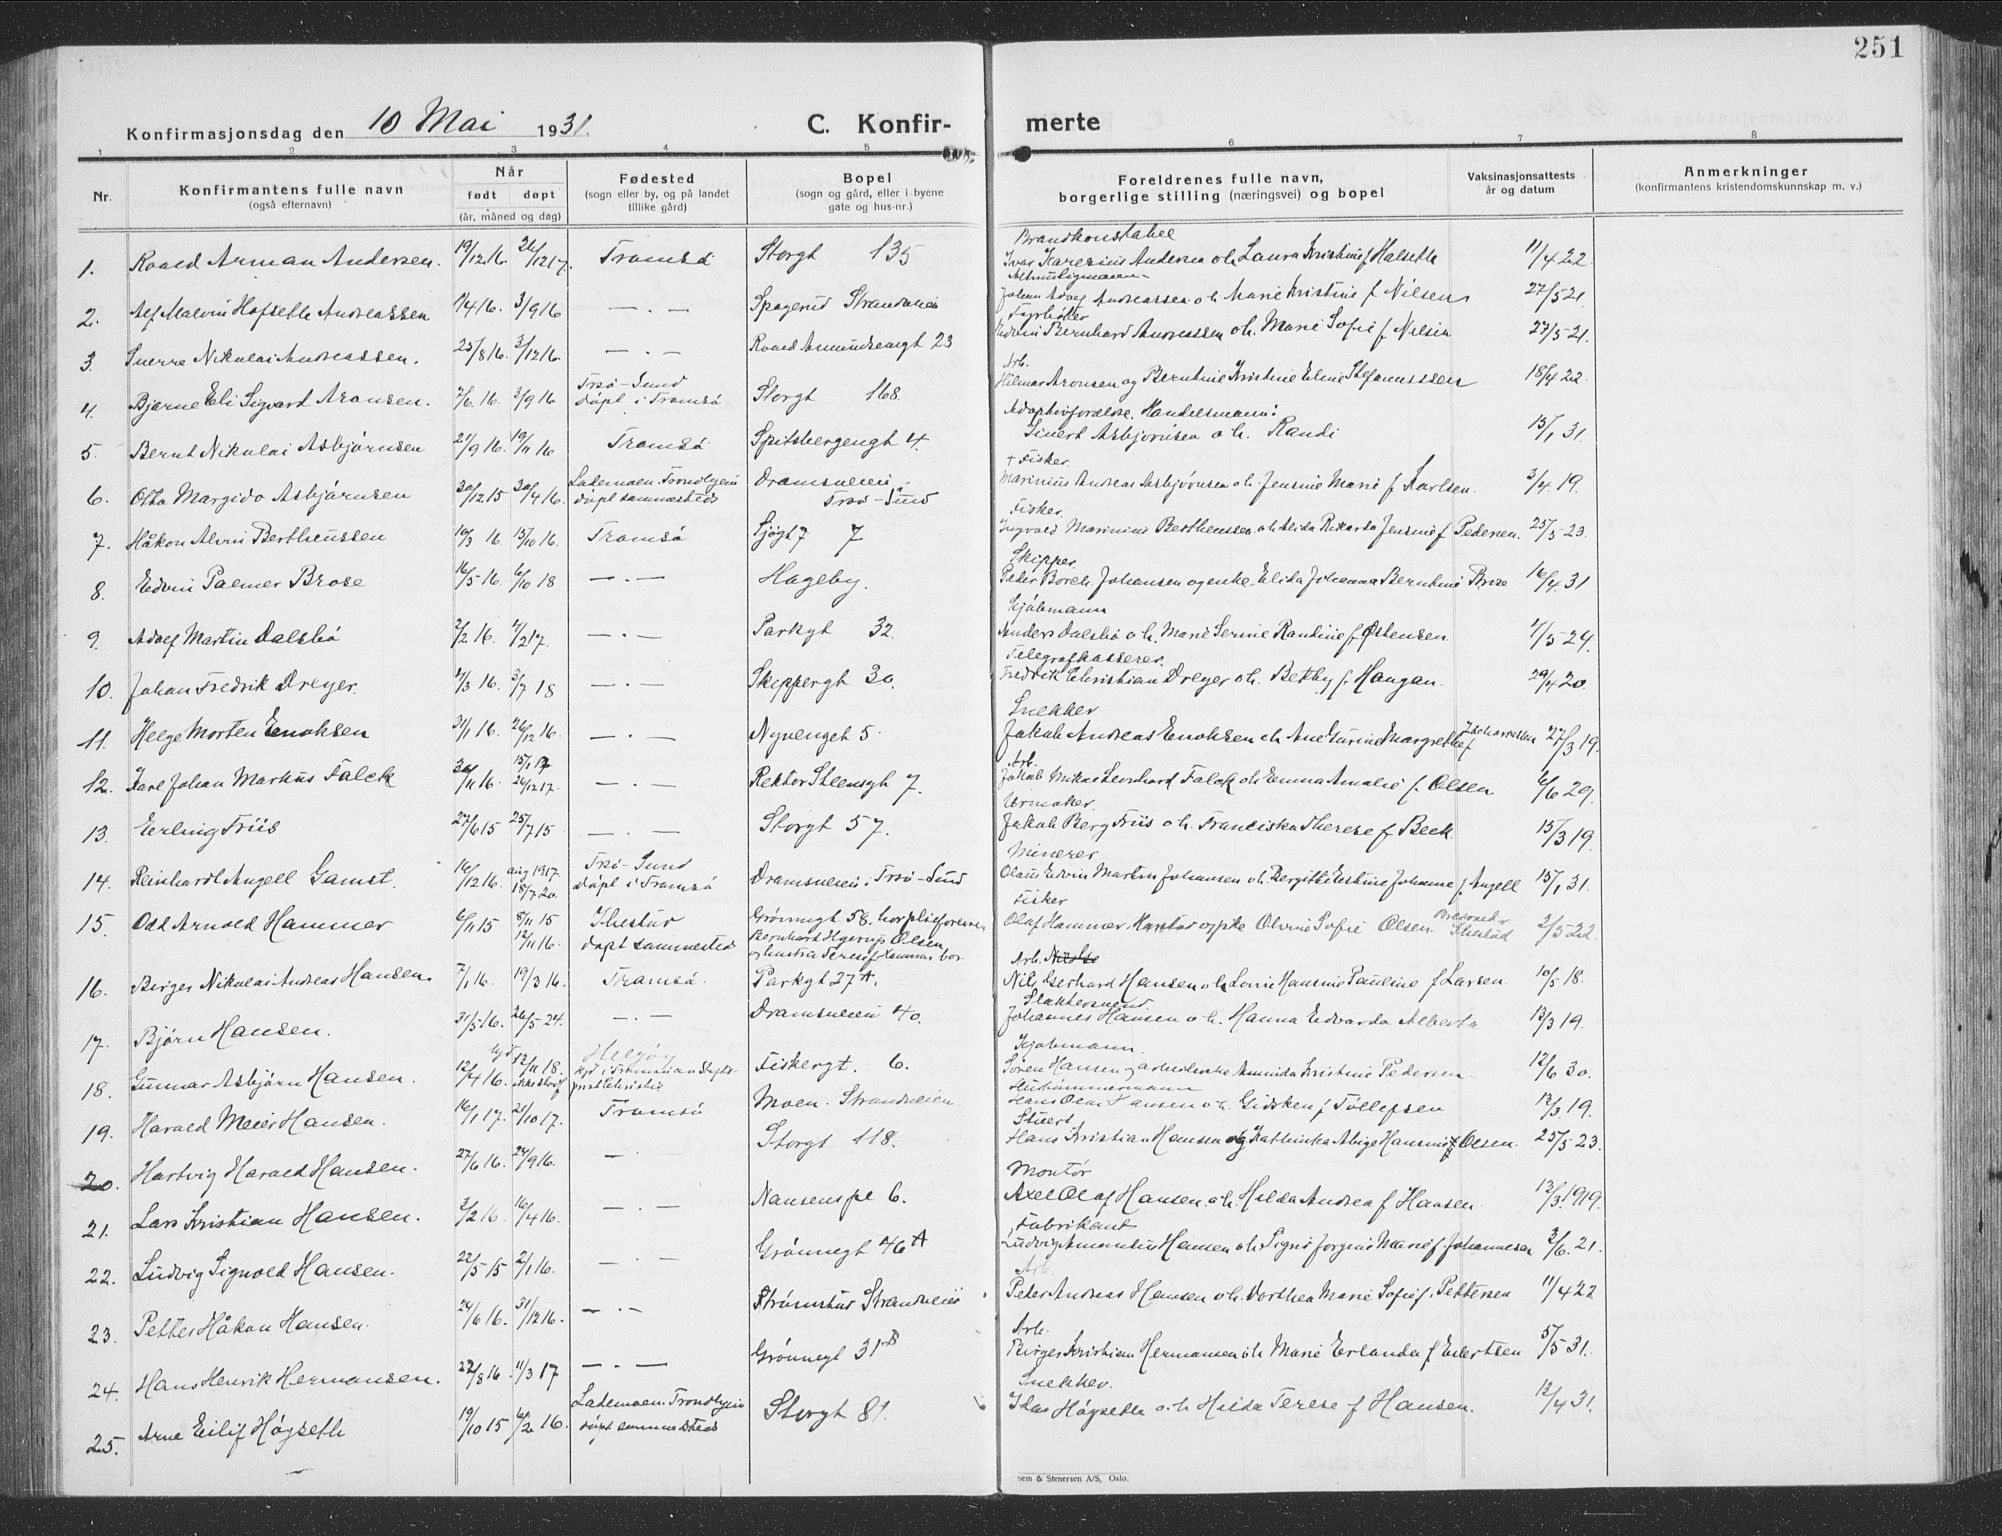 251
Konfirmasjonsdag den 10 Mai 1931.
C. Konfir-
merte
1 2 3 4 5 6 7 8
Nr.
Konfirmantens fulle navn
(også efternavn)
Når
født døpt
(år, måned og dag)
Fødested
(sogn eller by, og på landet
tillike gård)
Bopel
(sogn og gård, eller i byene
gate og hus-nr.)
Foreldrenes fulle navn,
borgerlige stilling (næringsvei) og bopel
Vaksinasjonsattests
år og datum
Anmerkninger
(konfirmantens kristendomskunnskap m. v.)
Brandkonstabel
1. Roald Arman Andersen. 19/12 16. 26/12 17. Tromsø Storgt 135 Ivar Karesius Andersen o h. Laura Kristine f Halseth 11/4 22.
2. Alf Malvin Hofseth Andreassen 1/4 16. 3/9 16 —.— Strandveien Johan Adolf Andreassen o h. Marie Kristine f. Nilsen 27/5 21.
Fyrbøter
3. Sverre Nikolai Andreassen. 25/8 16. 3/12 16. —.— Roald Amundsensgt 23 Edvin Bernhard Andreassen o h. Marie Sofie f. Nilsen 27/5 21.
Arb.
4. Bjarne Eli Sigvard Aronsen. 7/6 16. 3/9 16 Trsø-Sund
døpt i Tromsø Storgt 168. Hilmar Aronsen og Berntine Kristine Eline Stefanussen 18/4 22.
Adoptivforeldre. Handelsmann:
5. Bernt Nikolai Asbjørnsen 21/9 16. 19/11 16 Tromsø Spitsbergengt 4. Sivert Asbjørnsen o h. Randi 15/1 31.
+ Fisker.
6. Otto Margido Asbjørnsen 30/12 15 30/4 16. Lademoen. Trondhjem
døpt sammesteds Dramsveien.
Trsø-Sund Marinius Andreas Asbjørnsen o h. Jensine Marie f Karlsen. 3/4 19.
Fisker.
7. Håkon Alvin Bertheussen 10/3 16. 15/10 16. Tromsø Sjøgt 7 7 Ingvald Marinius Bertheussen o h. Alida Rikarda Jensine f Pedersen. 25/5 23.
Skipper.
8. Edvin Palmer Brose 16/5 16. 6/10 18 —.— Hageby. Peder Borch. Johansen og enke. Elida Johanna Berntine Brose 16/4 31
Kjøbmann
9. Adolf Martin Dalsbø 2/2 16. 4/2 17. —.— Parkgt 32. Anders Dalsbø o h. Marie Serine Randine f. Østensen 1/5 24.
Telegrafkasserer.
10. Johan Fredrik Dreyer. 1/3 16. 3/7 18 —.— Skippergt 30. Fredrik Christian Dreyer o h. Bethy f. Haugan. 29/4 20.
Snekker
11. Helge Morten Enoksen 31/1 16. 26/12 16. —.— Nyvenget 5. Jakob Andreas Enoksen o h Ane Gurine Margrethe f 27/3 19.
Arb.
12. Karl Johan Markus Falck 30/11 16. 15/1 17
26/12 17. —.— Rektor Steensgt 7. Jakob Mikal Leonhard Falck o h Emma Amalie f. Olsen 6/6 29.
Urmaker.
13. Erling Friis 27/6 15 25/7 15 —.— Storgt 57. Jakob Berg Friis o h. Franciska Therese f Beck. 15/3 19.
Minerer
14. Reinhardt Angell Gamst. 16/12 16. aug 1917.
18/7 20. Trsø-Sund
døpt i Tromsø Dramsveien i Trsø-Sund Olaus Edvin Martin Johansen o h. Bergitte Ertine Johanne f. Angell 15/1 31.
Fisker
15. Odd Arnold Hammer 6/11 15 8/11 15
12/11 16. Ibestad
døpt sammesteds Grønnegt 58. hos pleieforeldre
Bernhard Hgerup Olsen
Olaf Hammer, og pike Olvine Sofie Olsen 2/5 22.
Arb.
16. Birger Nikolai Andreas Hansen. 7/1 16. 19/3 16. Tromsø. Parkgt 27 A. Nils Gerhard Hansen o h Lovie Hansine Pauline f Larsen. 10/5 18.
Slaktersvend
17. Bjørn Hansen. 31/5 16. 26/5 24. —.— Dramsveien 40. Johannes Hansen o h. Hanna Edvarda Alberta 13/3 19.
Kjøbmann.
18. Gunnar Asbjørn Hansen. 12/4 16. 12/11 18. Helgøy Fiskergt. 6. Søren Hansen Kristine Pedersen 12/6 30.
Hushømmermann
19. Harald Meier Hansen. 16/1 17. 21/10 17. Tromsø Moen. Strandveien Hans Olai Hansen o h. Gidsken f Tollefsen 13/3 19.
Stuert
20. Hartvig Harald Hansen. 27/6 16. 24/9 16. —.— Storgt 118. Hans Kristian Hansen og Kathinka Abigael Hansine f Olsen. 25/5 23.
Montør
21. Lars Kristian Hansen. 2/2 16. 16/4 16. —.— Nansenspl 6. Axel Olaf Hansen o h. Hilda Andrea f Hansen. 13/3 1919.
Fabrikant
22. Ludvig Sigvold Hansen. 22/5 15 2/1 16. —.— Grønnegt 46 A Ludvig Amandus Hansen o h Signe Jorgine Marie f. Johannesen 2/6. 21.
Arb.
23. Petter Håkon Hansen. 24/6 16. 31/12 16. —.— Strømstad Strandveien Peter Andreas Hansen o h. Dorthea Marie Sofie f. Pettersen 11/4 22
Arb.
24. Hans Henrik Hermansen. 22/8 16. 11/3 17 —.— Grønnegt 31 B Birger Kristian Hermansen o h Marie Erlanda f Eilertsen 5/5 31.
Snekker.
25. Arne Eilif Høyseth 19/10 15 6/2 16. Lademoen. Trondhjem
døpt sammesteds Storgt 81. Høyseth o h Hilda Terese f Hansen. 13/4 31.
Sem & Stenersen A/S, Oslo.